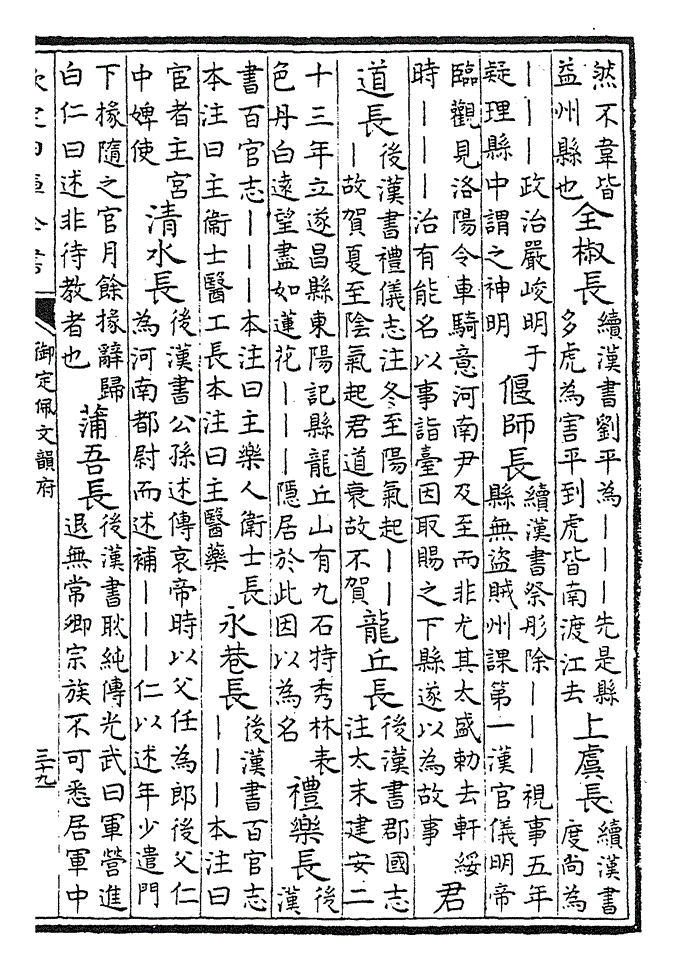 然不韋皆
益州縣也
全椒長
續漢書劉平為｜｜｜先是縣
多虎為害平到虎皆南渡江去
上虞長
續漢書
度尚為
｜｜｜政治嚴峻明于
疑理縣中謂之神明
偃師長
續漢書祭彤除｜｜｜視事五年
縣無盜賊州課第一漢官儀明帝
臨觀見洛陽令車騎意河南尹及至而非尤其太盛勅去軒綏
時｜｜｜｜治有能名以事詣臺因取賜之下縣遂以為故事
君
道長
後漢書禮儀志注冬至陽氣起｜｜
｜故賀夏至陰氣起君道衰故不賀
龍丘長
後漢書郡國志
注太末建安二
十三年立遂昌縣東陽記縣龍丘山有九石特秀林表
色丹白遠望盡如蓮花｜｜｜隱居於此因以為名
禮樂長
後
漢
書百官志｜｜｜本注曰主樂人衛士長
本注曰主衛士醫工長本注曰主醫藥
永巷長
後漢書百官志
｜｜｜本注曰
宦者主宮
中婢使
清水長
後漢書公孫述傳哀帝時以父任為郎後父仁
為河南都尉而述補｜｜｜仁以述年少遣門
下掾隨之官月餘掾辭歸
白仁曰述非待教者也
蒲吾長
後漢書耿純傳光武曰軍營進
退無常卿宗族不可悉居軍中
御定佩文韻府
三十九